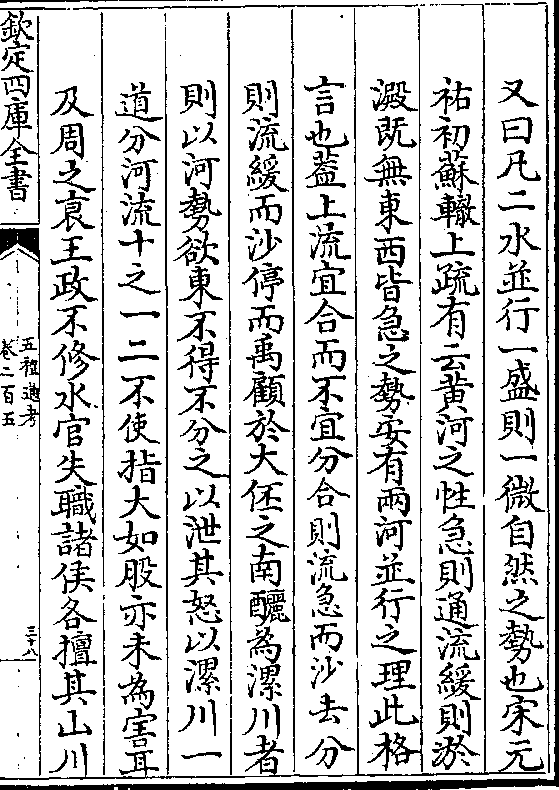 又曰凡二水並行一盛則一微自然之勢也宋元
祐初蘇轍上疏有云黃河之性急則通流緩則淤
澱既無東西皆急之勢安有兩河並行之理此格
言也葢上流宜合而不宜分合則流急而沙去分
則流緩而沙停而禹顧於大伾之南釃為漯川者
則以河勢欲東不得不分之以泄其怒以漯川一
道分河流十之一二不使指大如股亦未為害耳
及周之衰王政不修水官失職諸侯各擅其山川
欽定四庫全書
五禮通考
卷二百五
三十八